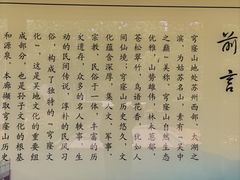 前言
穹窿山地处苏州西部，太湖之
滨，为姑苏名山，素有“吴中
之巅”美称。穹窿山自然生态
优雅，山势雄伟，林木葱郁，
苍松翠竹，鸟语花香，犹如人
间仙境。穹窿山历史悠久，文
化蕴含深厚，集人文、军事、
宗教、民俗于一体，丰富的历
史遗存，众多的名人轶事，生
动的民间传说，淳朴的民风习
俗，构成了独特的“穹窿文
化”，这是吴地文化的重要组
成部分，也是孙子文化的根基
和源泉。本廊撷取穹窿山历史